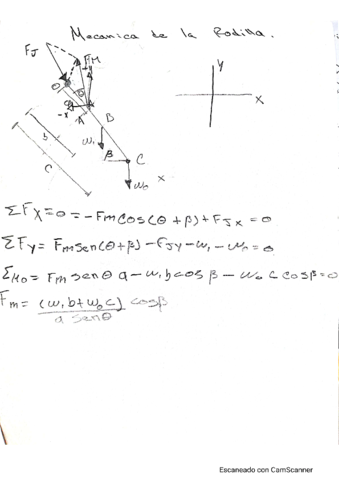 Mecanica de la Rodilla.
FJ
FM
O
θ
Y
X
-x
A
A
B
b
W₁
β
C
c
W₀
x
ΣFx=0=-FmCos(θ+β)+FJx=0
ΣFy= Fmsen(θ+β)-FJy-w₁-w₀=0
ΣMo= Fm senθ a-w₁bcosβ-w₀ c cosβ=0
Fm= (w₁b+w₀c) cosβ
a senθ
Escaneado con CamScanner